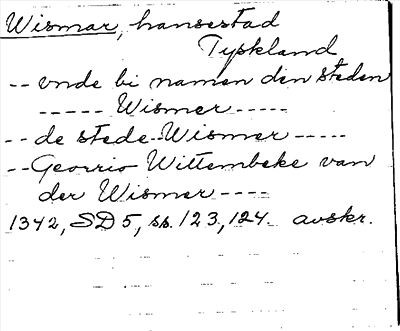 Wismar, hansestad
Tyskland
-- vnde bi namen den steden
----- Wismer -----
-- de stede Wismer -----
-- Georrio Wittembeke van
der Wismer ----
1342, SD 5, ss. 123, 124. avskr.